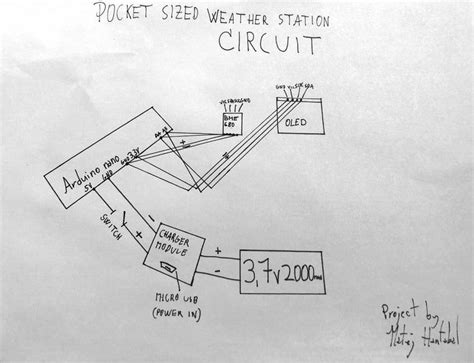 POCKET SIZED WEATHER STATION
CIRCUIT
GND VCC SCK SDA
BME
680
OLED
Arduino nano
5V GND GND 3,3V A4 A5
+
-
SWITCH
-
+
CHARGER
MODULE
+
-
3,7V 2000mAh
MICRO USB
(POWER IN)
Project by